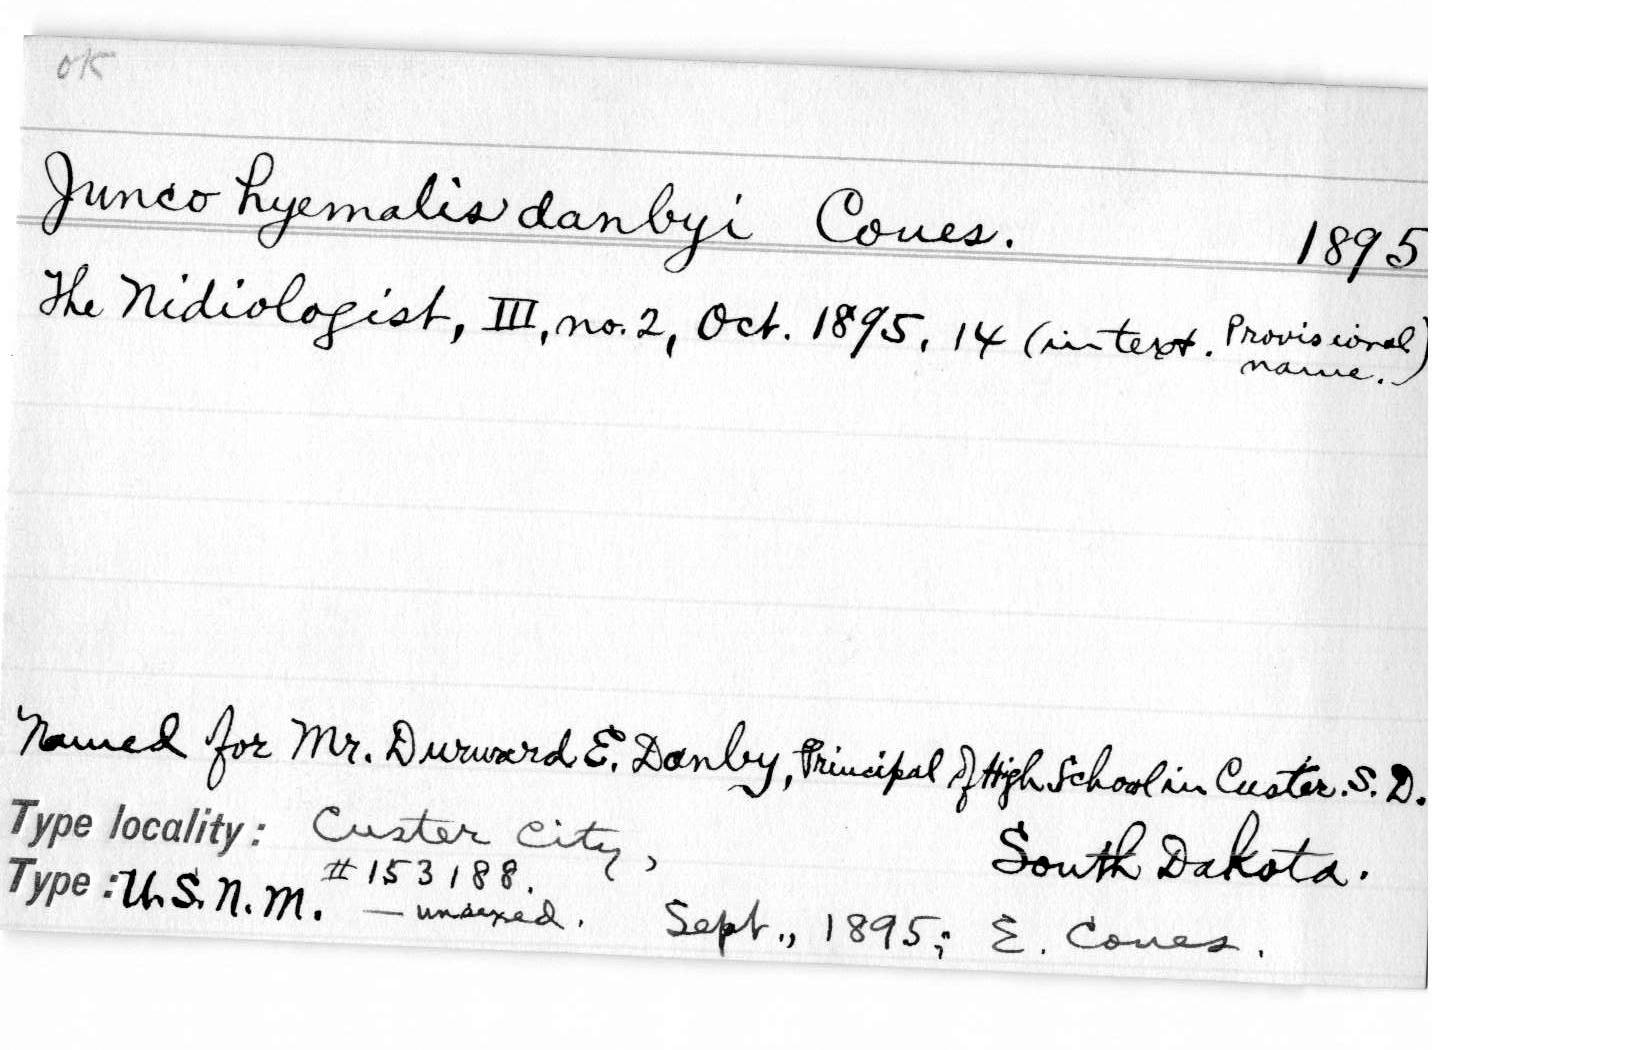 OK
Junco hyemalis danbyi Coues. 1895
The Nidiologist, III, no. 2, Oct. 1895, 14 (in text. Provisional
name.)
Named for Mr. Durward E. Danby, Principal of High School in Custer. S. D.
Type locality: Custer City, South Dakota.
Type: U.S.N.M. #153188.
— unsexed. Sept., 1895; E. Coues.